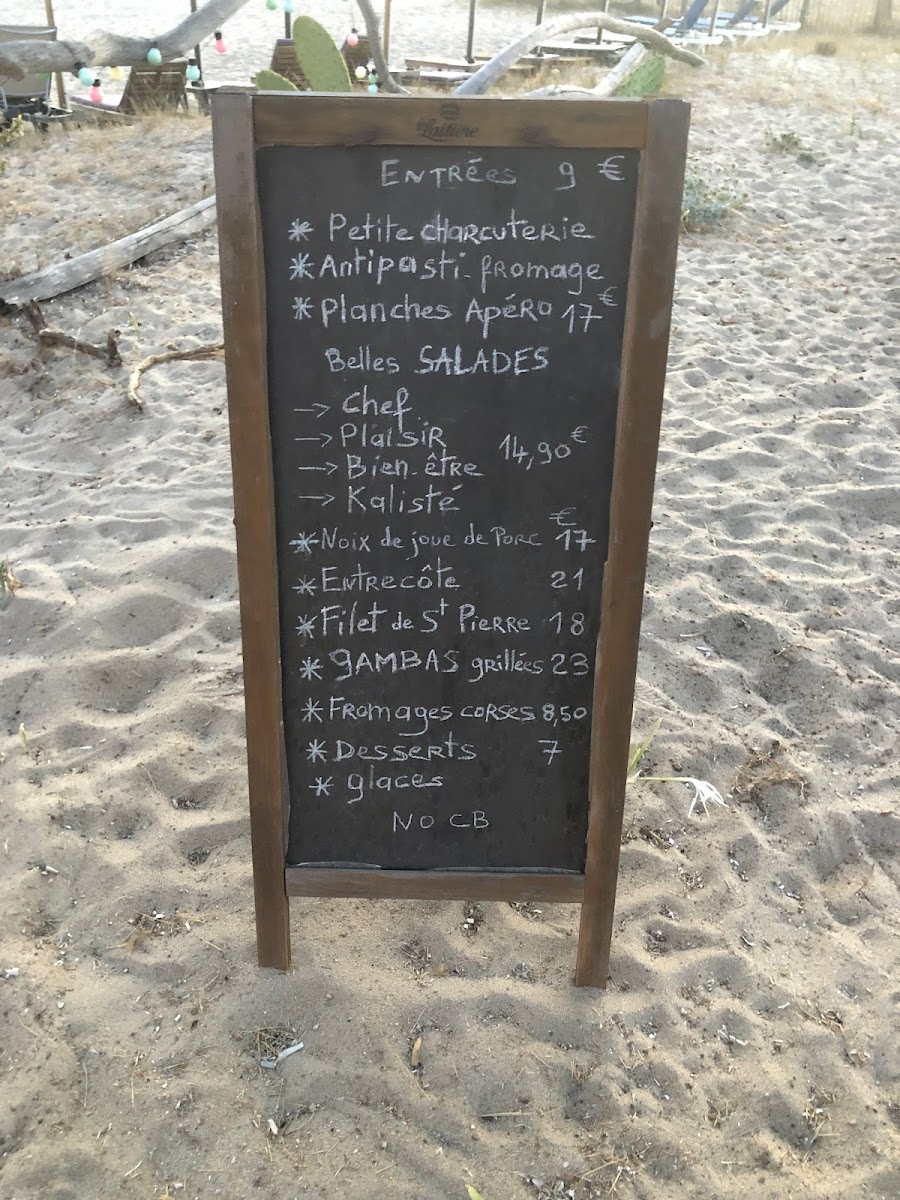 la Laitière
ENTRÉES 9 €
* Petite CHARCUTERIE
* Antipasti-fromage
* Planches Apéro 17€
Belles SALADES
→ Chef
→ Plaisir
14,90€
→ Bien-être
→ Kalisté
* Noix de joue de Porc 17 €
* Entrecôte 21
* Filet de St Pierre 18
* GAMBAS grillées 23
* Fromages corses 8,50
* Desserts 7
* glaces
NO CB